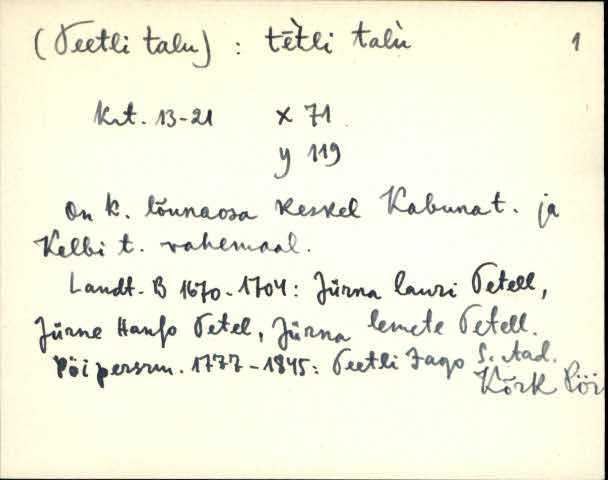 (Teetli talu) : tētli talù 1
Krt. 13-21 x 71
y 119
On k. lõunaosa keskel Kabuna t. ja
Kelbi t. vahemaal.
Landt. B 1670-1704: Jürna lauri Petell,
Jürne Hanso Petel, Jürna lemete Petell.
Pöi persrm. 1777-1845: Teetli Jago S. Aad.
Kõrk Pöi